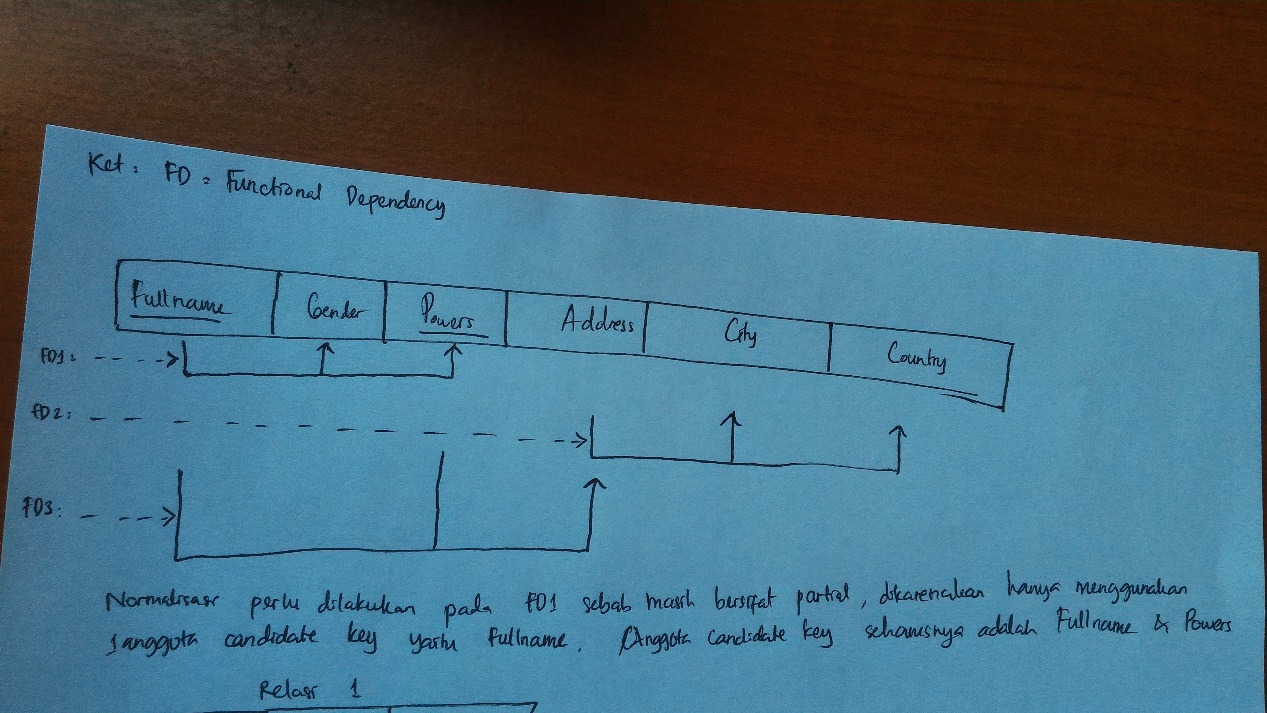 Ket : FD = Functional Dependency
Fullname Gender Powers Address City Country
FD1 :
FD2 :
FD3 :
Normalisasi perlu dilakukan pada FD1 sebab masih bersifat partial, dikarenakan hanya menggunakan
1 anggota candidate key yaitu Fullname. Anggota candidate key seharusnya adalah Fullname & Powers
Relasi 1